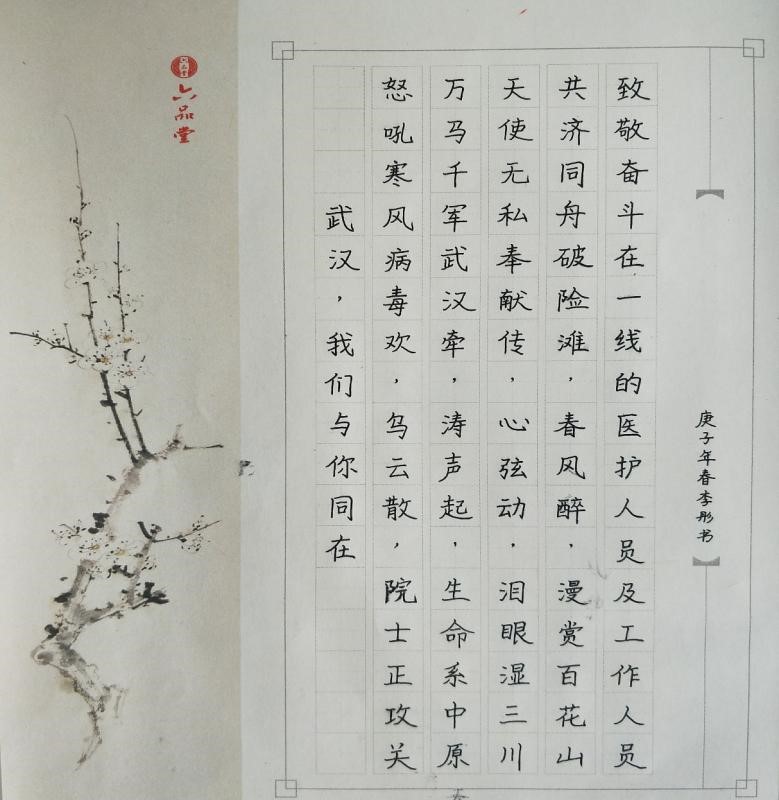 致敬奋斗在一线的医护人员及工作人员
共济同舟破险滩，春风醉，漫赏百花山
天使无私奉献传，心弦动，泪眼湿三川
万马千军武汉牵，涛声起，生命系中原
怒吼寒风病毒欢，乌云散，院士正攻关
武汉，我们与你同在
庚子年春李彤书
六品堂
六品堂